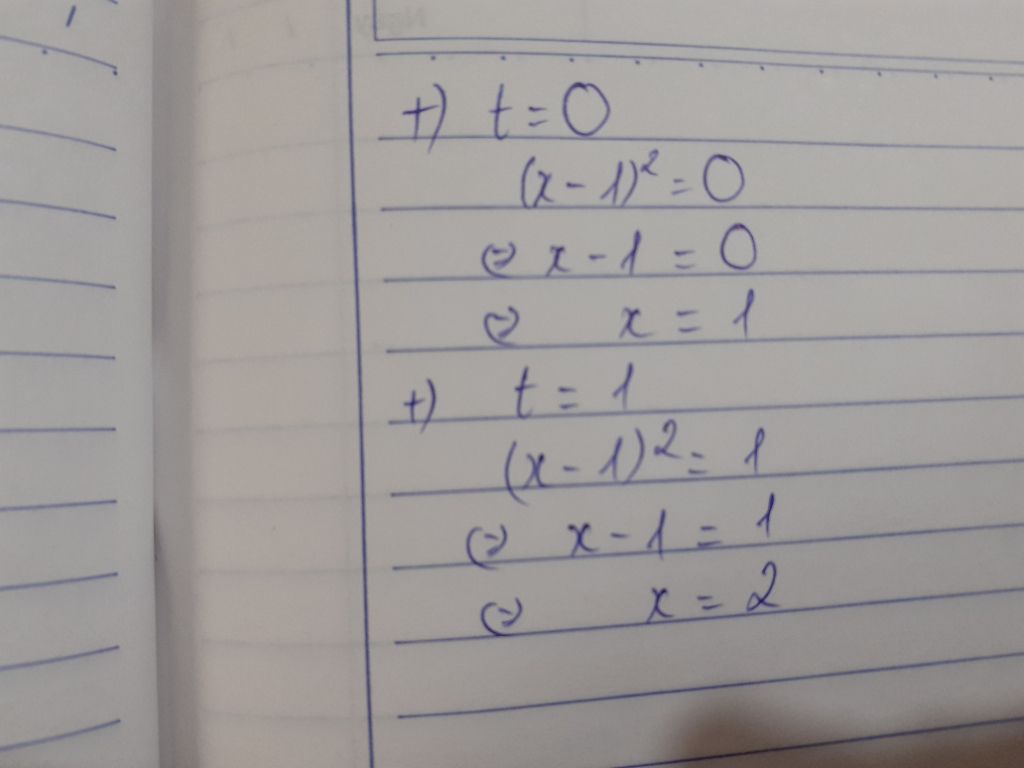 +) t = 0
(x - 1)² = 0
⇔ x - 1 = 0
⇔ x = 1
+) t = 1
(x - 1)² = 1
⇔ x - 1 = 1
⇔ x = 2